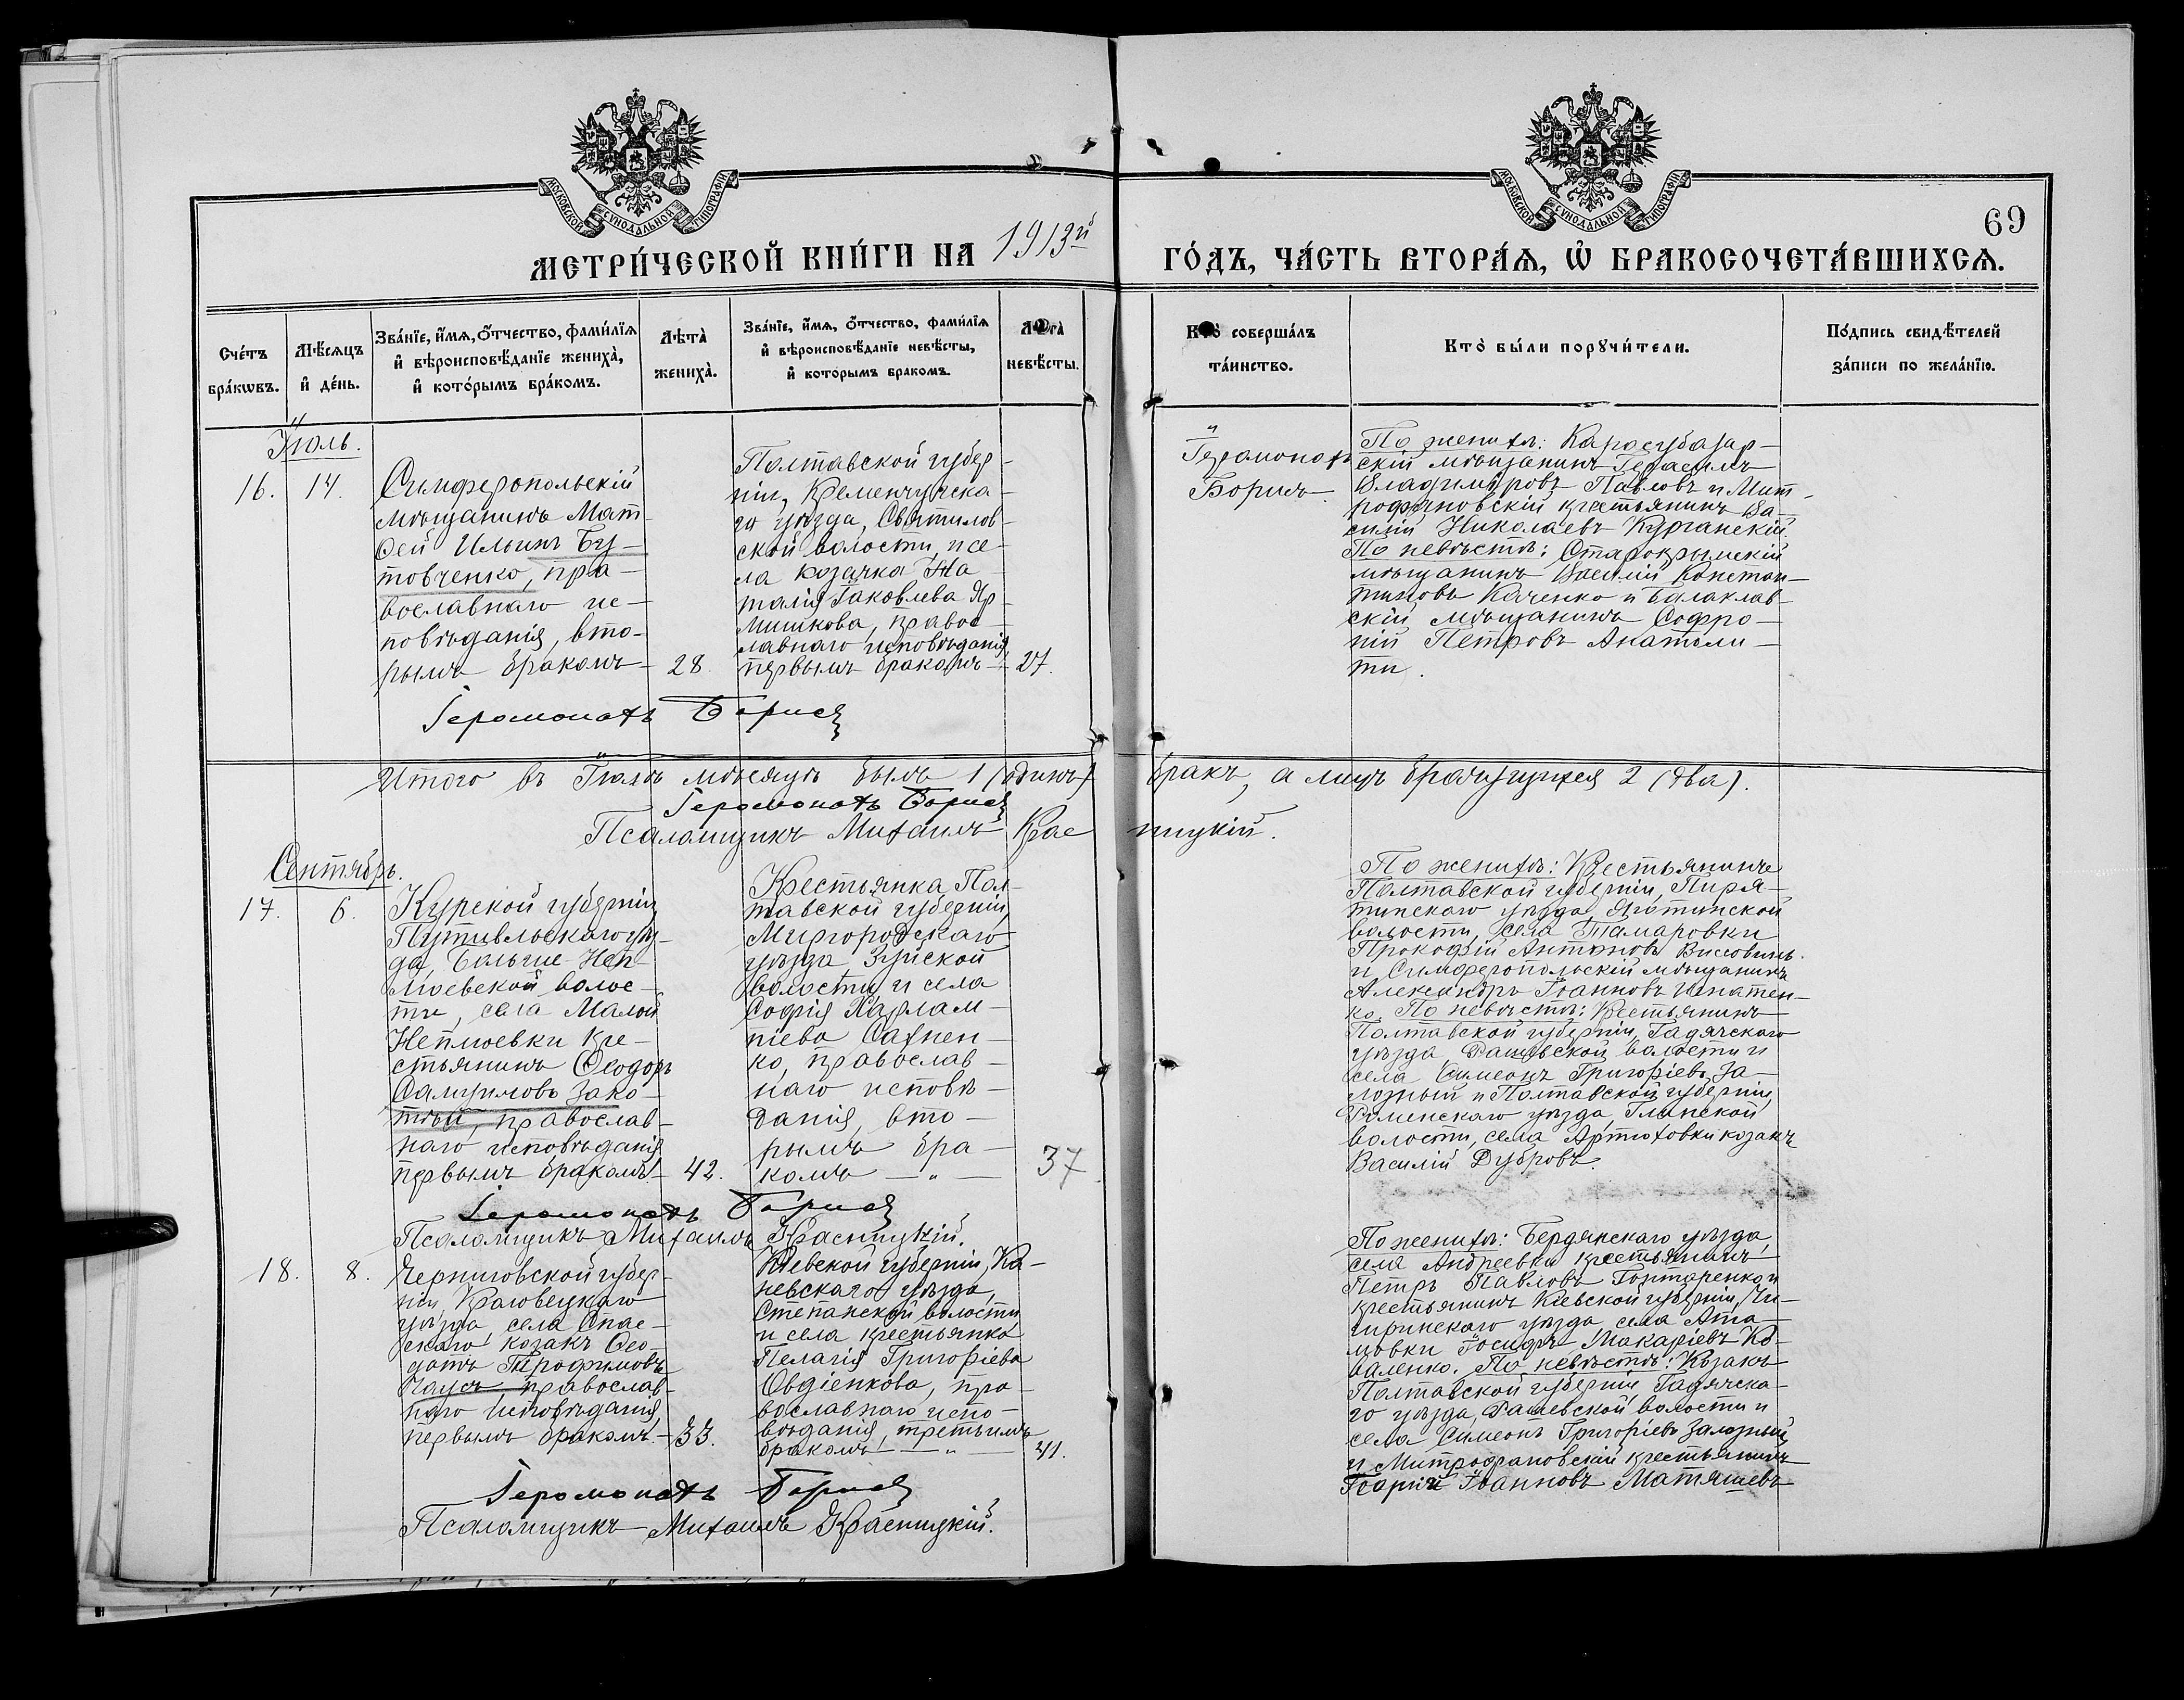 69
МОСКОВСКОЙ СѴНОДАЛЬНОЙ ТИПОГРАФІИ
МОСКОВСКОЙ СѴНОДАЛЬНОЙ ТИПОГРАФІИ
МЕТРИ́ЧЕСКОЙ КНИ́ГИ НА 1913й
ГО́ДЪ, ЧА́СТЬ ВТОРА́Ѧ, Ѡ҆ БРАКОСОЧЕТА́ВШИХСѦ.
Сче́тъ
бра́кѡвъ.
Мѣ́сѧцъ
и҆ де́нь.
Зва́нїе, и҆́мѧ, ѻ҆́тчество, фами́лїѧ
и҆ вѣроисповѣ́данїе жениха̀,
и҆ кото́рымъ бра́комъ.
Лѣ́та
жениха̀.
Зва́нїе, и҆́мѧ, ѻ҆́тчество, фами́лїѧ
и҆ вѣроисповѣ́данїе невѣ́сты,
и҆ которымъ бракомъ.
Лѣта̀
невѣ́сты.
Кто̀ соверша́лъ
та́инство.
Кто̀ бы́ли порꙋчи́тели.
По́дпись свидѣ́телей
за́писи по жела́нїю.
Іюль.
16.
14.
Симферопольскій
мѣщанинъ Мат-
ѳей Ильинъ Бу-
товченко, пра-
вославнаго ис-
повѣданія, вто-
рымъ бракомъ
28.
Полтавской губер-
ніи, Кременчугска-
го уѣзда, Святилов-
ской волости, и се-
ла козачка На-
талія Іаковлева Яр-
мишкова, правос-
лавнаго исповѣданія
первымъ бракомъ
27.
Іеромонахъ
Борисъ
По женихѣ: Карасубазар-
скій мѣщанинъ Герасимъ
Владиміровъ Павловъ и Мит-
рофановскій крестьянинъ Ва-
силій Николаевъ Курганскій.
По невѣстѣ: Старокрымскій
мѣщанинъ Василій Констан-
тиновъ Каченко и Балаклав-
скій мѣщанинъ Софро-
ній Петровъ Анатоли-
ти.
Іеромонахъ Борисъ
Итого въ Іюлѣ мѣсяцѣ былъ 1 (одинъ) бракъ, а лицъ брачущихся 2 (два).
Іеромонахъ Борисъ
Псаломщикъ Михаилъ Красницкій.
Сентябрь.
17.
6.
Курской губерніи
Путивльскаго уѣз-
да, Больше-Неп-
люевской волос-
ти, села Малой
Неплюевки кре-
стьянинъ Ѳеодоръ
Зако-
тѣй, православ-
наго исповѣданія
первымъ бракомъ
42.
Крестьянка Пол-
тавской губерніи,
Миргородскаго
уѣзда Зуйской
волости и села
Софія Харлам-
піева Сахнен-
ко, православ-
наго исповѣ-
данія, вто-
рымъ бра-
комъ — „ —
37
По женихѣ: Крестьянинъ
Полтавской губерніи, Пиря-
тинскаго уѣзда, Яготинской
волости, села Тамаровки
Прокофій Антоновъ
и Симферопольскій мѣщанинъ
Александръ Іоанновъ Игнатен-
ко. По невѣстѣ: Крестьянинъ
Полтавской губерніи, Гадячскаго
уѣзда, Рашевской волости и
села Симеонъ Григоріевъ За-
лозный и Полтавской губерніи,
Роменскаго уѣзда, Глинской
волости, села Артюховки козакъ
Василій Дубровъ.
Іеромонахъ Борисъ
Псаломщикъ Михаилъ Красницкій.
18.
8.
Черниговской губер-
ніи, Кролевецкаго
уѣзда села Спас-
скаго козакъ Ѳео-
датъ Трофимовъ
православ-
наго исповѣданія,
первымъ бракомъ.
33.
Кіевской губерніи, Ка-
невскаго уѣзда,
Степанской волости
и села крестьянка
Пелагія Григоріева
Овдіенкова, пра-
вославнаго испо-
вѣданія, третьимъ
бракомъ — „ —
41.
По женихѣ: Бердянскаго уѣзда,
села Андреевки крестьянинъ
Петръ Павловъ Гонтаренко и
крестьянинъ Кіевской губерніи, Чи-
гиринскаго уѣзда, села Ата-
мовки Іосифъ Макаріевъ Ко-
валенко. По невѣстѣ: Козакъ
Полтавской губерніи, Гадячска-
го уѣзда, Рашевской волости и
села Симеонъ Григоріевъ Залозный
и Митрофановскій крестьянинъ
Іоанновъ Матяшевъ
Іеромонахъ Борисъ
Псаломщикъ Михаилъ Красницкій.